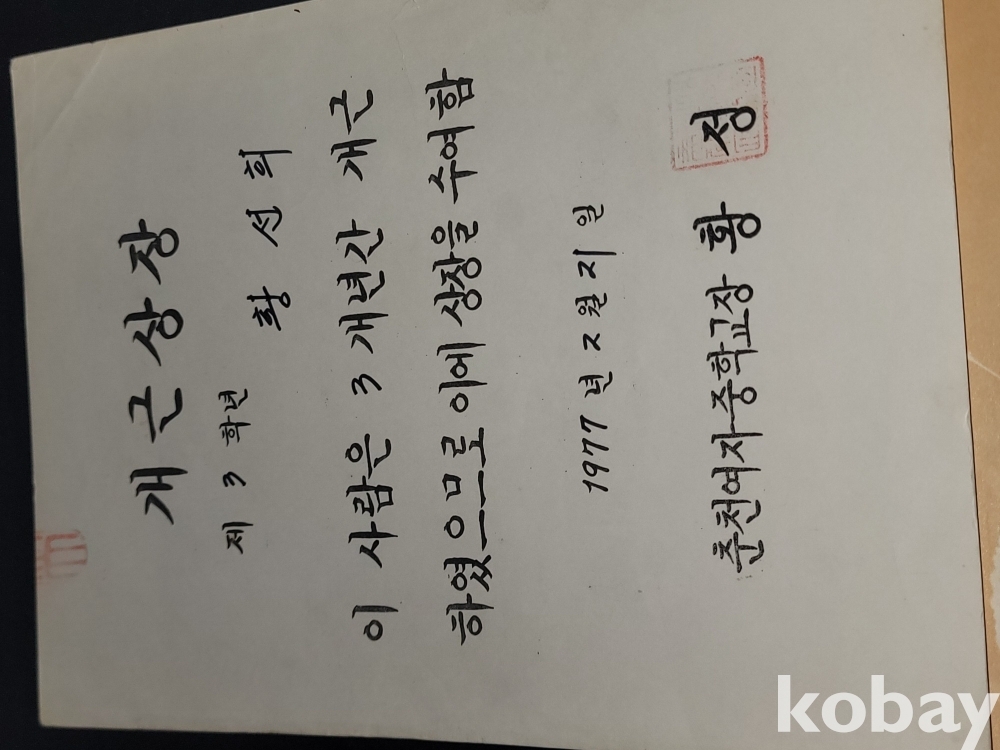 개근상장
제 3 학년
황 선 희
이 사람은 3 개년간 개근
하였으므로 이에 상장을 수여함
1977 년 2 월 21 일
춘천여자중학교장 황 정
kobay